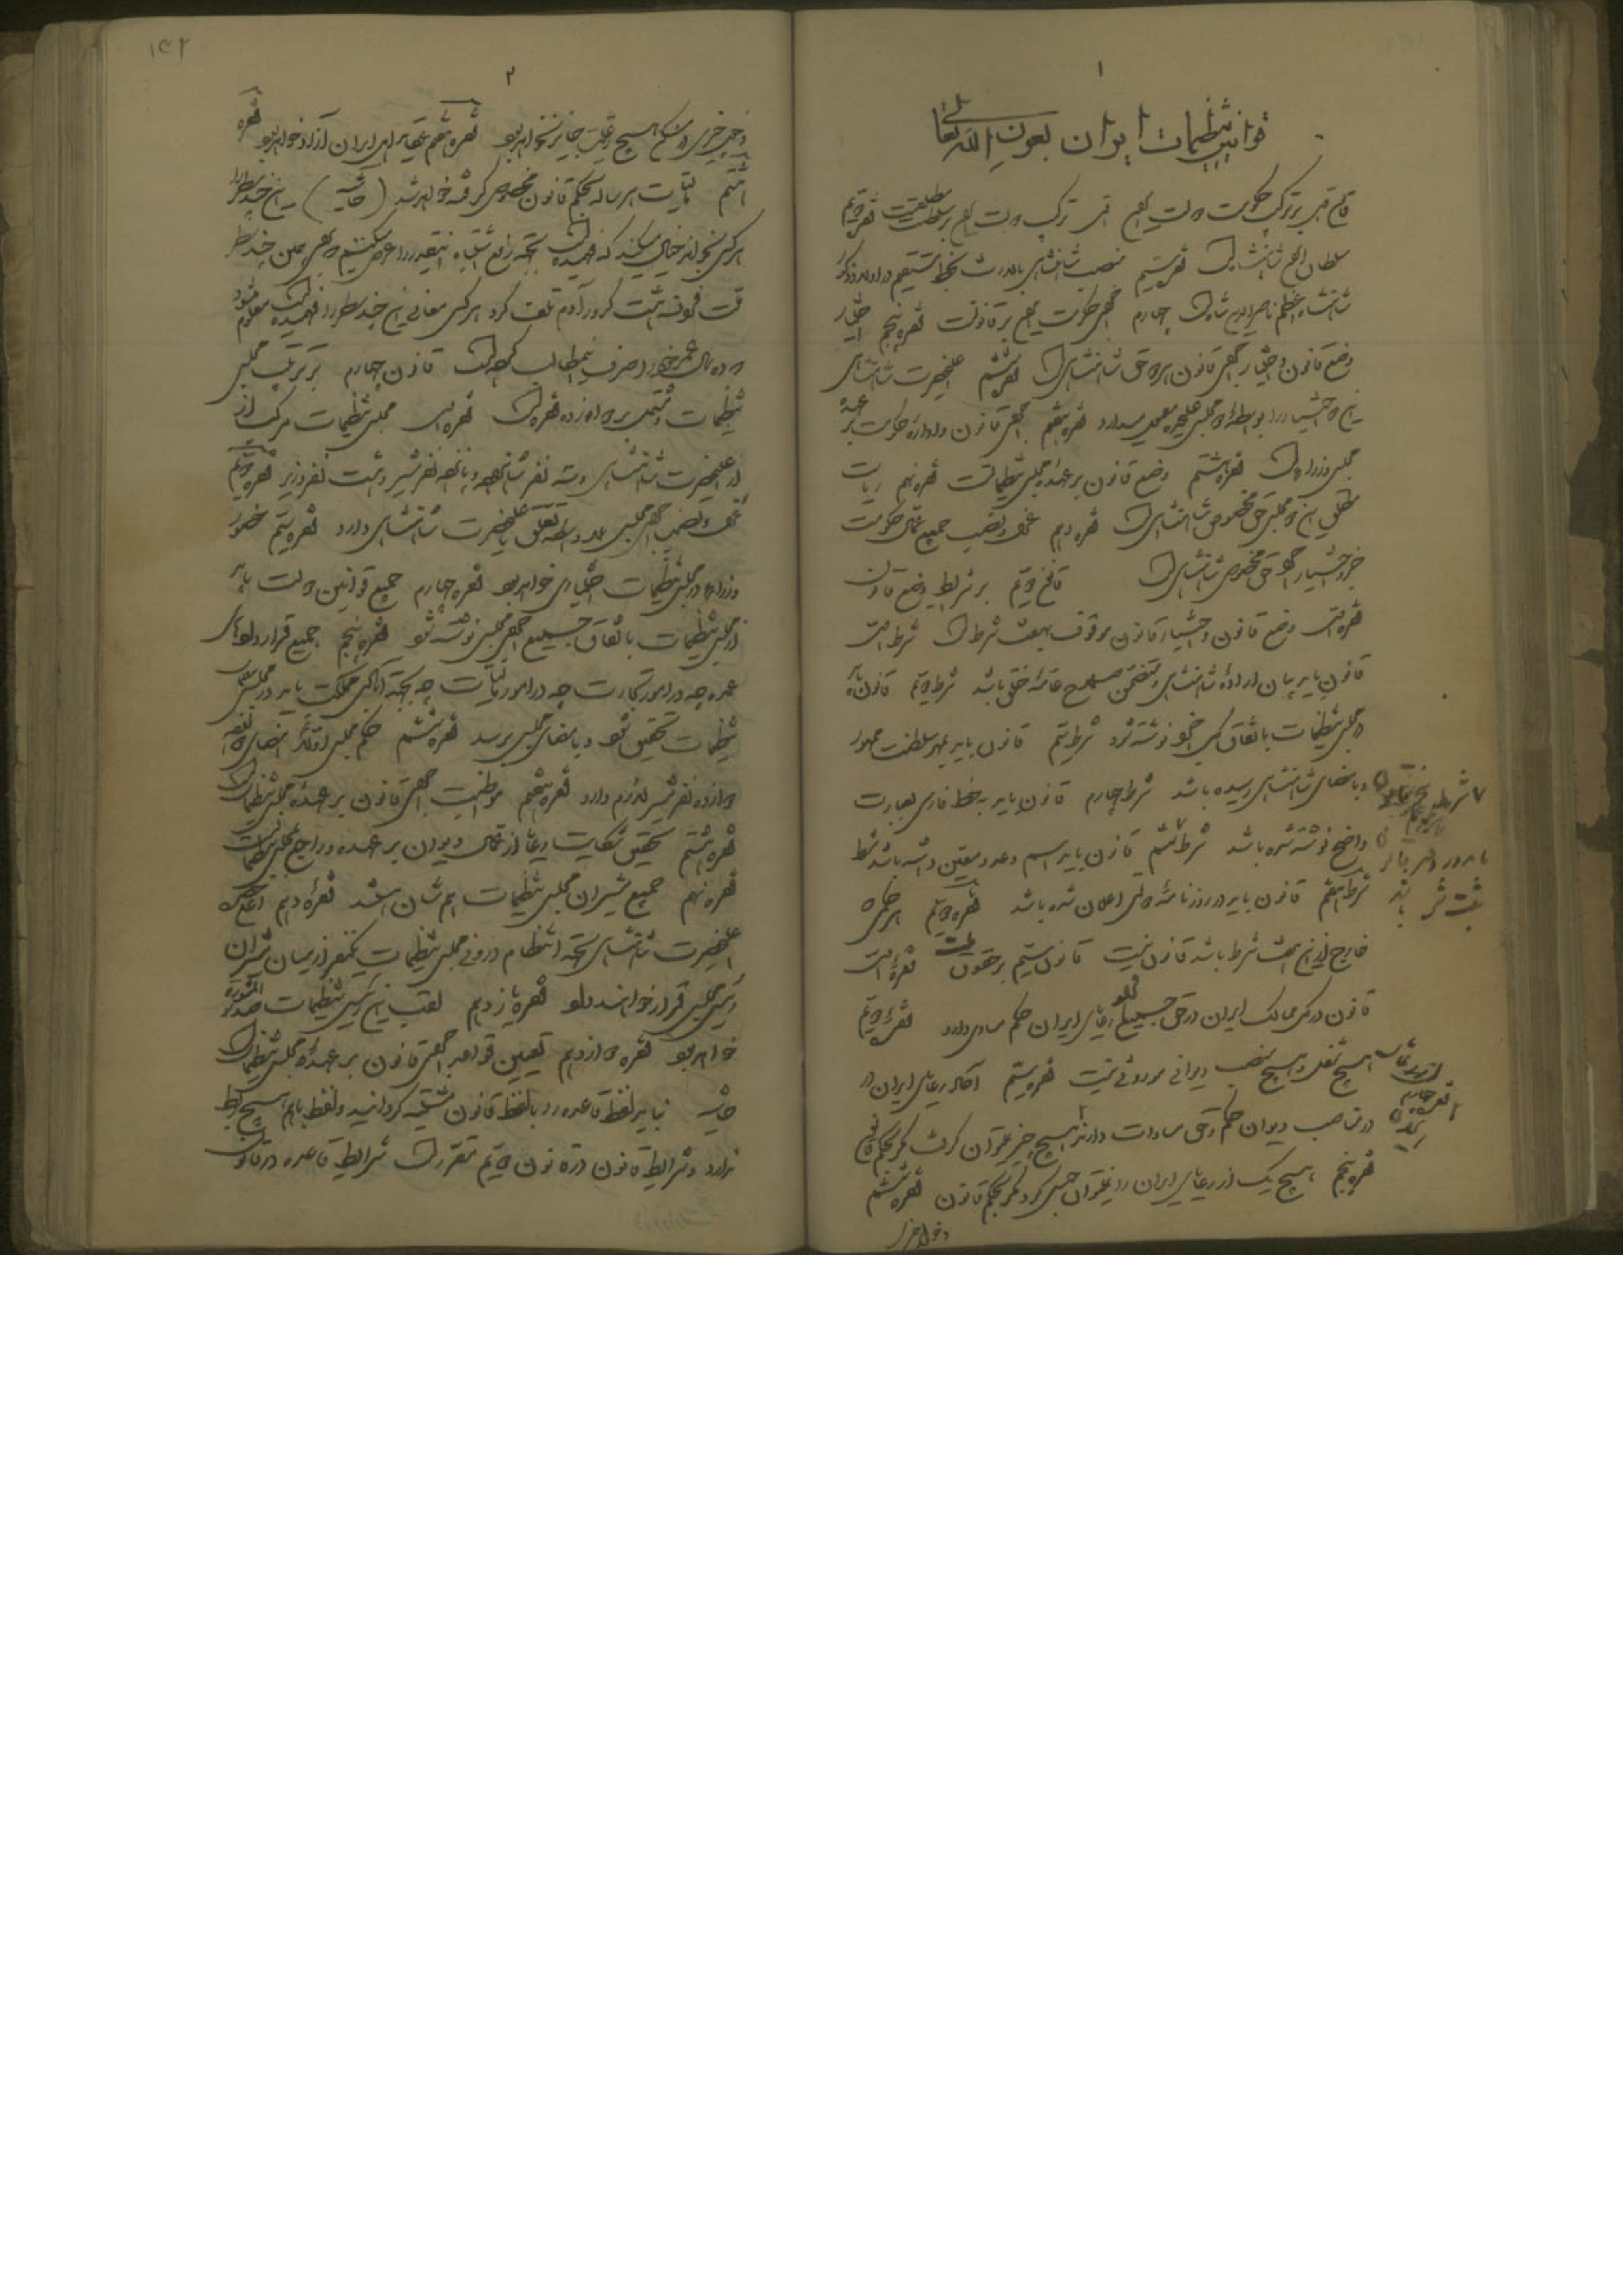 ۱
قوانین تنظیمات ایران بعون الله تعالی
قانون اول بر ترکیب حکومت دولت ایران فقره اول ترکیب دولت ایران بر سلطنت مطلقه است فقره دویم
سلطان ایران شاهنشاه است فقره سیم منصب شاهنشاهی بالارث بخط مستقیم در اولاد ذکور
شاهنشاه اعظم ناصرالدین شاه است چهارم اجرای حکومت ایران بر قانونست فقره پنجم اختیار
وضع قانون و اختیار اجرای قانون هر دو حق شاهنشاهی است فقره ششم اعلیحضرت شاهنشاهی
این دو اختیار را بواسطه دو مجلس علیحده معمول میدارد فقره هفتم اجرای قانون و اداره حکومت بر عهده
مجلس وزراء است فقره هشتم وضع قانون بر عهده مجلس تنظیماتست فقره نهم ریاست
کلی این دو مجلس حق مخصوص شاهنشاهی است فقره دهم عزل و نصب جمیع عمال حکومت
جزو اختیار اجرا و حق مخصوص شاهنشاهی است قانون دویم بر شرایط وضع قانون
فقره اول وضع قانون و اعتبار قانون موقوف بهشت شرط است شرط اول
قانون باید بیان اراده شاهنشاهی و متضمن صلاح عامه خلق باشد شرط دویم قانون باید
در مجلس تنظیمات باتفاق کل اجزا نوشته شود شرط سیم قانون باید بمهر سلطنت ممهور
و بامضای شاهنشاهی رسیده باشد شرط چهارم قانون باید به خط فارسی بعبارت
واضح نوشته شده باشد شرط ششم قانون باید اسم و عدد معین داشته باشد شرط
شرط هفتم قانون باید در روزنامه دولتی اعلان شده باشد فقره دویم هر حکمی که
خارج از این هشت شرط باشد قانون نیست قانون سیم بر حقوق ملت فقره اول
قانون در کل ممالک ایران در حق جمیع افراد رعایای ایران حکم مساوی دارد فقره دویم
هیچ شغل و هیچ منصب دیوانی موروثی نیست فقره سیم آحاد رعایای ایران در
در مناصب دیوان حکم و حق مساوات دارند هیچ چیز نمیتوان گرفت مگر بحکم قانون
فقره پنجم هیچ یک از رعایای ایران را نمیتوان حبس کرد مگر بحکم قانون فقره ششم
دخول جبری
شرط پنجم
ثبت شده باشد
از رعایا
فقره چهارم
۲
دخول جبری در مسکن هیچ رعیت جایز نخواهد بود فقره هفتم عقاید اهل ایران آزاد خواهد بود فقره
هشتم مالیات هر ساله بحکم قانون مخصوص گرفته خواهد شد (حاشیه) این چند سطر را
هر کس بخواند خیال میکند که فهمیده است بجهة رفع اشتباه اینقدر را عرض میکنیم که بر سر همین چند سطر
ملت فرانسه بیست کرور آدم تلف کرد هر کس معانی این چند سطر را فهمیده است معلوم میشود
ده سال عمر خود را صرف این مطالب کرده است قانون چهارم بر ترتیب مجلس
تنظیمات و مشتمل بر دوازده فقره است فقره اول مجلس تنظیمات مرکب است
از اعلیحضرت شاهنشاهی و سه نفر شاهزاده و پانزده نفر مشیر و هشت نفر وزیر فقره دویم
عزل و نصب اجزای مجلس بلاواسطه تعلق باعلیحضرت شاهنشاهی دارد فقره سیم حضور
وزراء در مجلس تنظیمات اختیاری خواهد بود فقره چهارم جمیع قوانین دولت باید
در مجلس تنظیمات باتفاق جمیع اجزای مجلس نوشته شود فقره پنجم جمیع قراردادهای
عمده چه در امور تجارت چه در امور مالیات چه بجهة آبادی مملکت باید در مجلس
تنظیمات تحقیق شود و بامضای مجلس برسد فقره ششم حکم مجلس اقلا امضای
دوازده نفر مشیر لازم دارد فقره هفتم مواظبت اجرای قانون بر عهده مجلس تنظیمات است
فقره هشتم تحقیق شکایت رعایا از عمال دیوان بر عهده و راجع بمجلس تنظیمات است
فقره نهم جمیع مشیران مجلس تنظیمات هم شأن هستند فقره دهم
اعلیحضرت شاهنشاهی بجهة انتظام درونی مجلس تنظیمات یکنفر از میان مشیران
رئیس مجلس قرار خواهند داد فقره یازدهم لقب این رئیس تنظیمات
خواهد بود فقره دوازدهم تعیین قواعد اجرای قانون بر عهده مجلس تنظیمات است
حاشیه نباید لفظ قاعده را با لفظ قانون مشتبه گردانید دو لفظ باهم هیچ ربط
ندارد و شرایط قانون در قانون دویم مقرر است شرایط قاعده در قانون